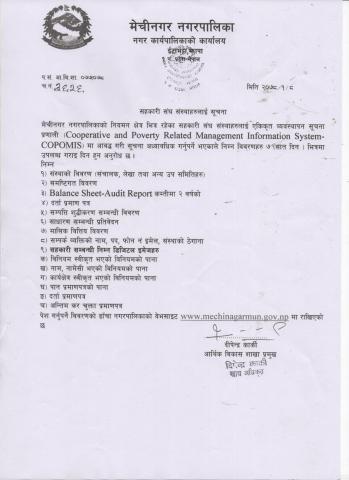 मेचीनगर नगरपालिका
नगर कार्यपालिकाको कार्यालय
प.सं.
च.नं.
मिति
सहकारी संघ संस्थाहरुलाई सूचना
मेचीनगर नगरपालिकाको नियमन क्षेत्र भित्र रहेका सहकारी संघ संस्थाहरुलाई एकिकृत व्यवस्थापन सूचना
प्रणाली (Cooperative and Poverty Related Management Information System-
COPOMIS) मा आवद्ध गरी सूचना अध्यावधिक गर्नुपर्ने भएकाले निम्न विवरणहरु ७ (सात दिन) भित्रमा
उपलब्ध गराइ दिनु हुन अनुरोध छ।
निम्न
१) संस्थाको विवरण (संचालक, लेखा तथा अन्य उप समितिहरु)
२) समष्टिगत विवरण
३) Balance Sheet-Audit Report कम्तीमा २ वर्षको
४) दर्ता प्रमाण पत्र
५) सम्पत्ति शुद्धीकरण सम्बन्धी विवरण
६) साधारण सम्बन्धी प्रतिवेदन
७) मासिक वित्तिय विवरण
८) सम्पर्क व्यक्तिको नाम, पद, फोन नं इमेल, संस्थाको ठेगाना
९) सहकारी सम्बन्धी निम्न डिजिटल इमेजहरु
क) विनियम स्वीकृत भएको विनियमको पाना
ख) नाम, नामेसी भएको विनियमको पाना
ग) कार्यक्षेत्र स्वीकृत भएको विनियमको पाना
घ) पान प्रमाणपत्रको पाना
ङ) दर्ता प्रमाणपत्र
च) अन्तिम कर चुक्ता प्रमाणपत्र
पेश गर्नुपर्ने विवरणको ढाँचा नगरपालिकाको वेभसाइट www.mechinagarmun.gov.np मा राखिएको
छ
दीपेन्द्र कार्की
आर्थिक विकास शाखा प्रमुख
दिपेन्द्र कार्की